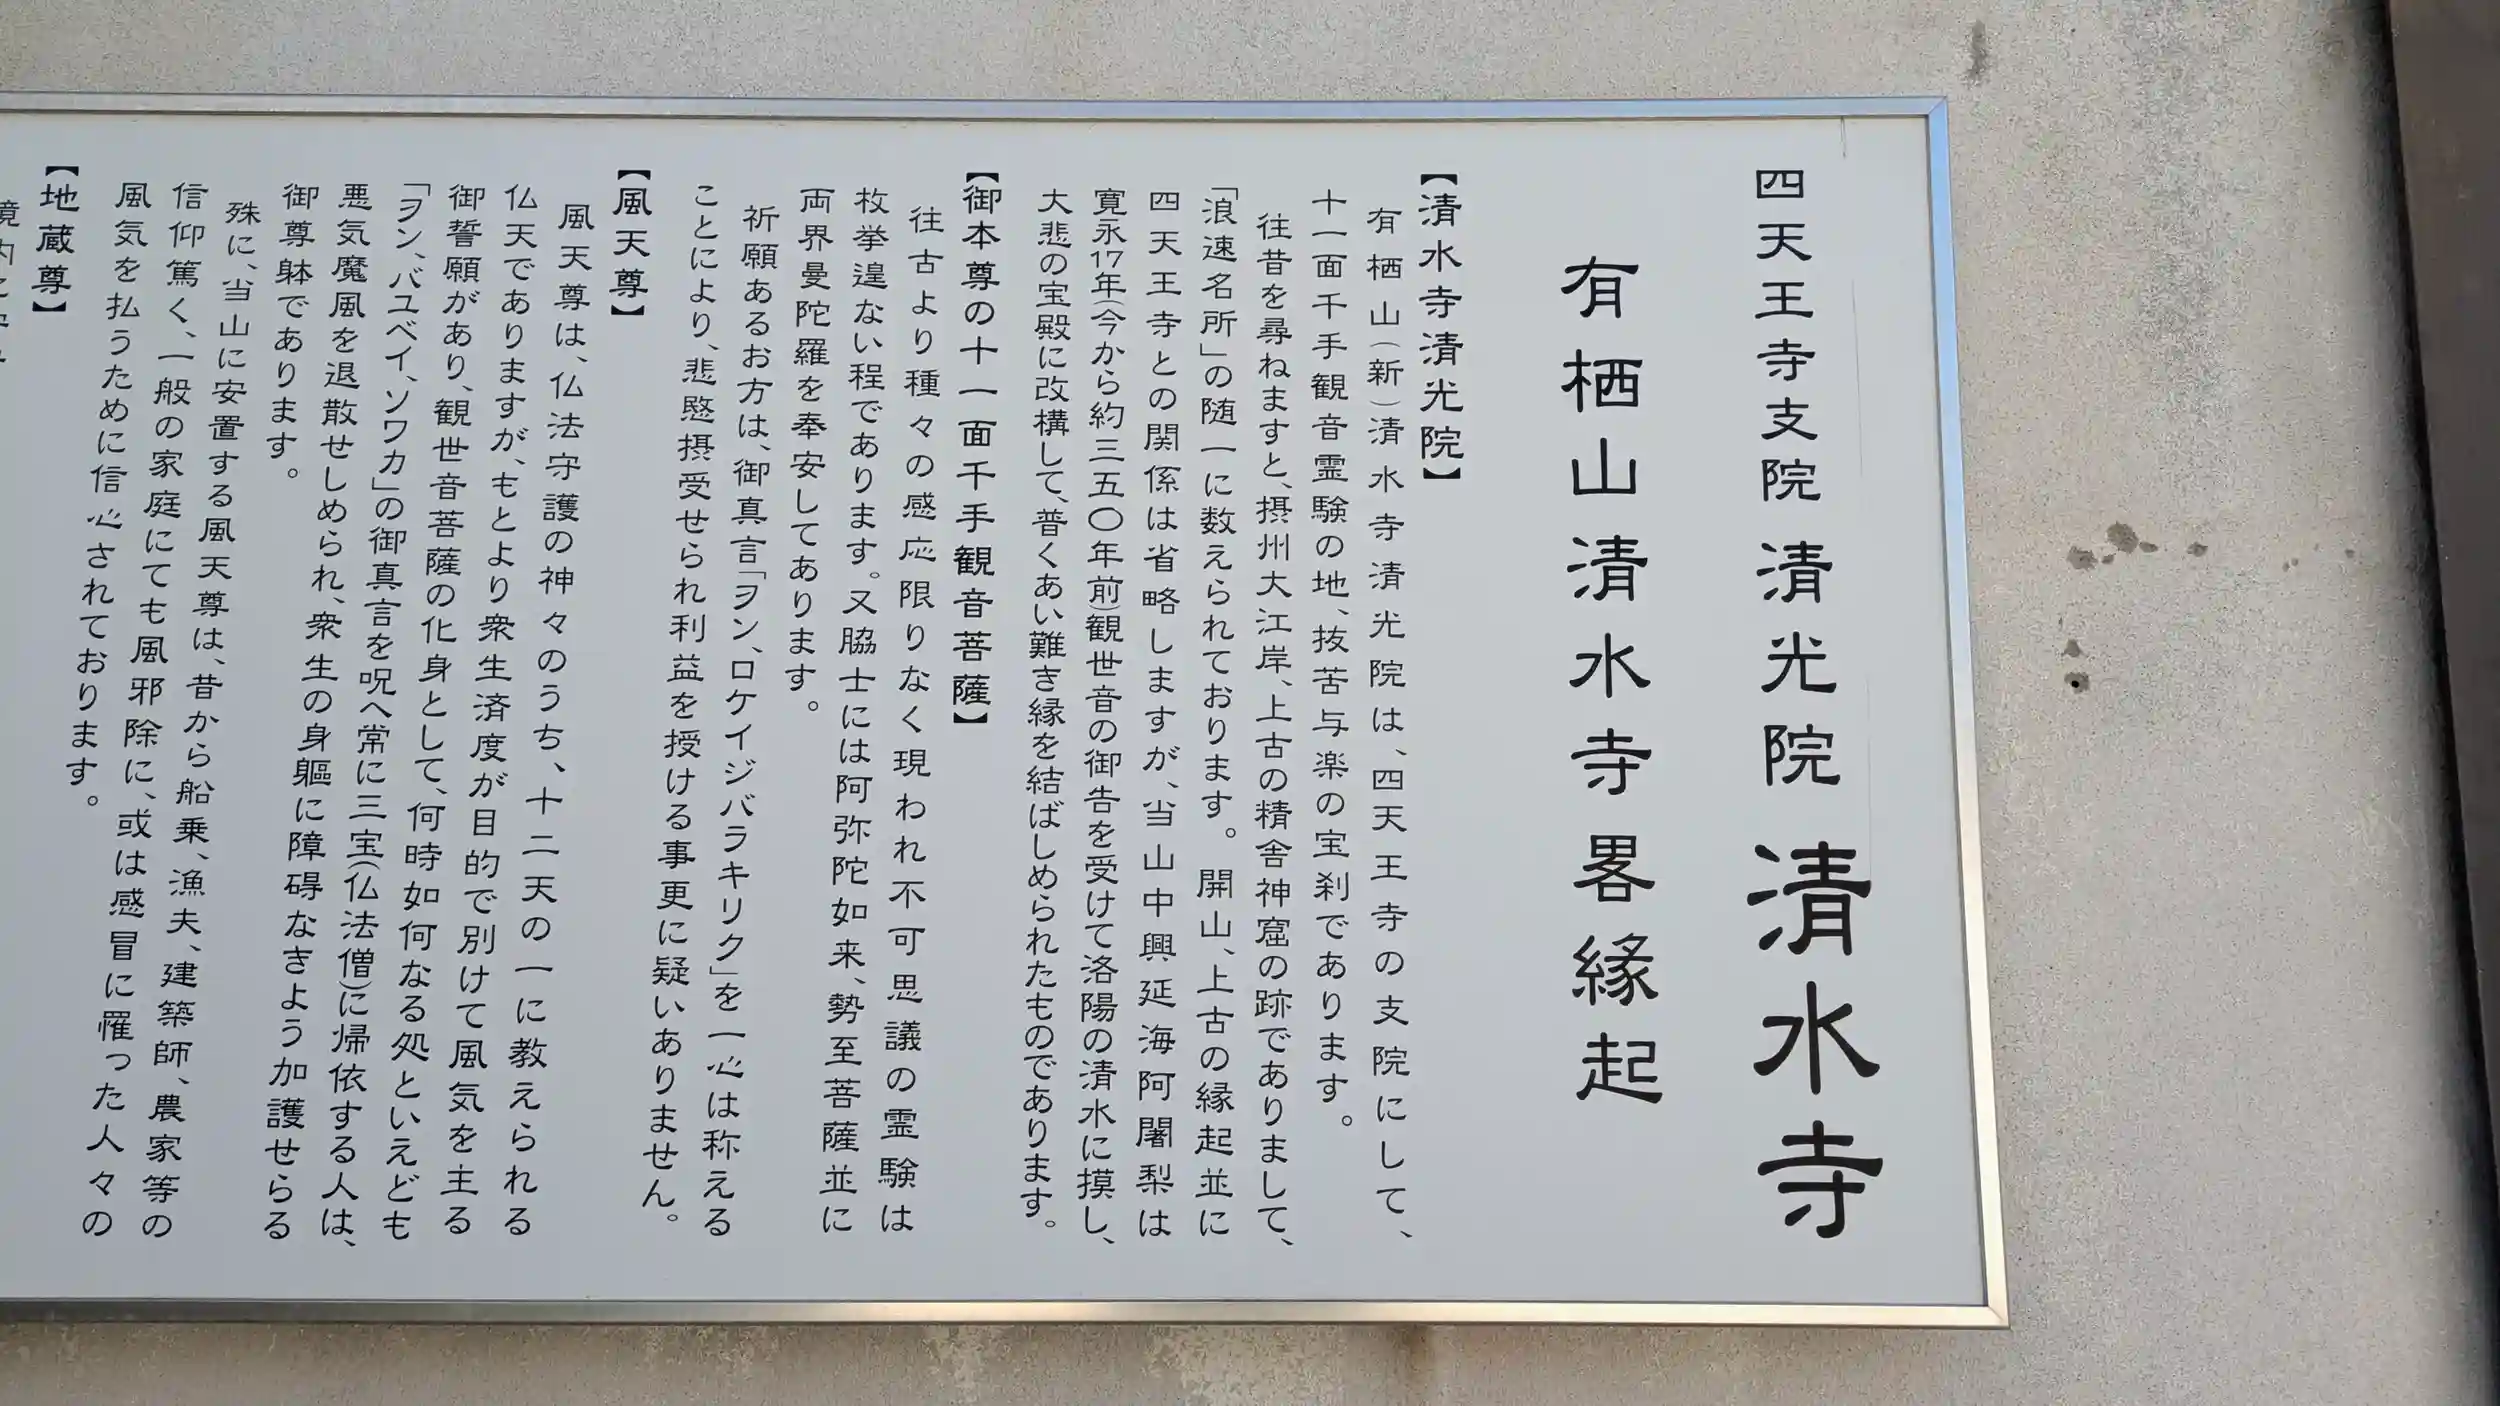 四天王寺支院 清光院 清水寺
有栖山清水寺畧縁起
【清水寺清光院】
有栖山(新)清水寺清光院は、四天王寺の支院にして、
十一面千手観音霊験の地、抜苦与楽の宝刹であります。
往昔を尋ねますと、摂州大江岸、上古の精舎神窟の跡でありまして、
「浪速名所」の随一に数えられております。開山、上古の縁起並に
四天王寺との関係は省略しますが、当山中興延海阿闍梨は
寛永17年(今から約三五〇年前)観世音の御告を受けて洛陽の清水に摸し、
大悲の宝殿に改構して、普くあい難き縁を結ばしめられたものであります。
【御本尊の十一面千手観音菩薩】
往古より種々の感応限りなく現われ不可思議の霊験は
枚挙遑ない程であります。又脇士には阿弥陀如来、勢至菩薩並に
両界曼陀羅を奉安してあります。
祈願あるお方は、御真言「ヲン、ロケイジバラキリク」を一心は称える
ことにより、悲愍摂受せられ利益を授ける事更に疑いありません。
【風天尊】
風天尊は、仏法守護の神々のうち、十二天の一に教えられる
仏天でありますが、もとより衆生済度が目的で別けて風気を主る
御誓願があり、観世音菩薩の化身として、何時如何なる処といえども
「ヲン、バユベイ、ソワカ」の御真言を呪へ常に三宝(仏法僧)に帰依する人は、
悪気魔風を退散せしめられ、衆生の身軀に障碍なきよう加護せらる
御尊躰であります。
殊に、当山に安置する風天尊は、昔から船乗、漁夫、建築師、農家等の
信仰篤く、一般の家庭にても風邪除に、或は感冒に罹った人々の
風気を払うために信心されております。
【地蔵尊】
境内に